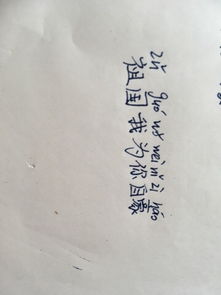 zǔ guó wǒ wèi nǐ zì háo
祖国我为你自豪